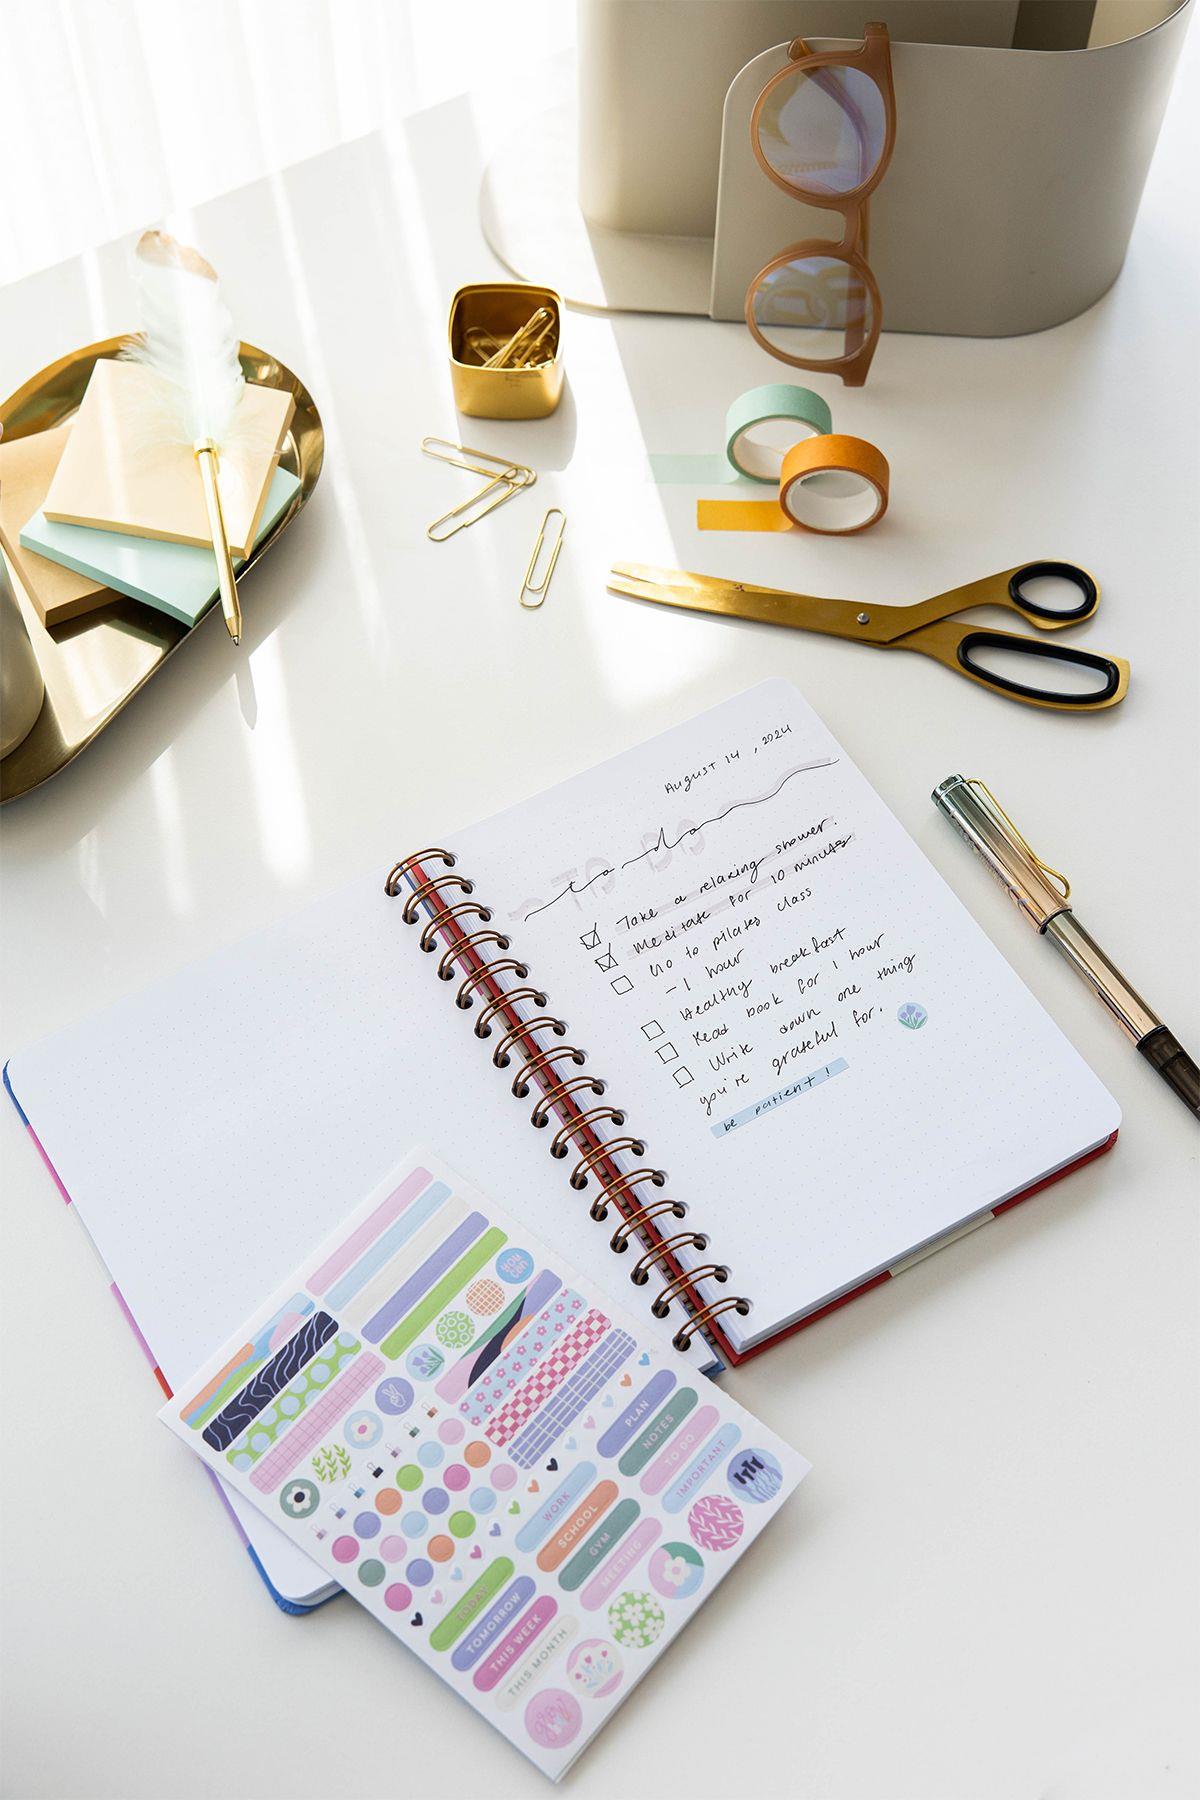 August 14, 2024
TO DO
to do
Take a relaxing shower.
Meditate for 10 minuts
Go to pilates class
- 1 hour
Healthy breakfast
Read book for 1 hour
Write down one thing
you're grateful for.
be patient!
you can
PLAN
NOTES
TO DO
IMPORTANT
WORK
SCHOOL
GYM
MEETING
TODAY
TOMORROW
THIS WEEK
THIS MONTH